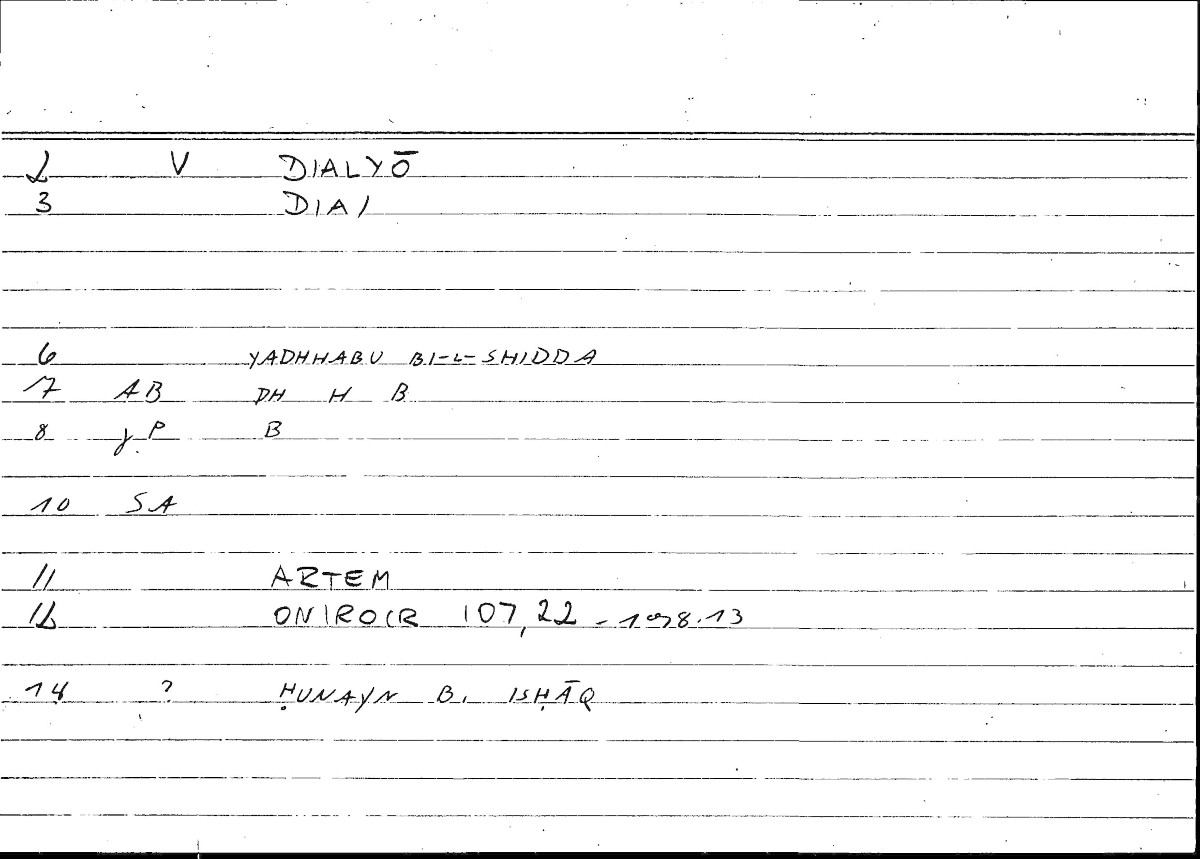 2 V DIALYŌ
3 DIA/
6 YADHHABU BI-L-SHIDDA
7 AB DH H B
8 j.P B
10 SA
11 ARTEM
12 ONIROCR 107,22 - 108.13
14 ? ḤUNAYN B. ISḤĀQ